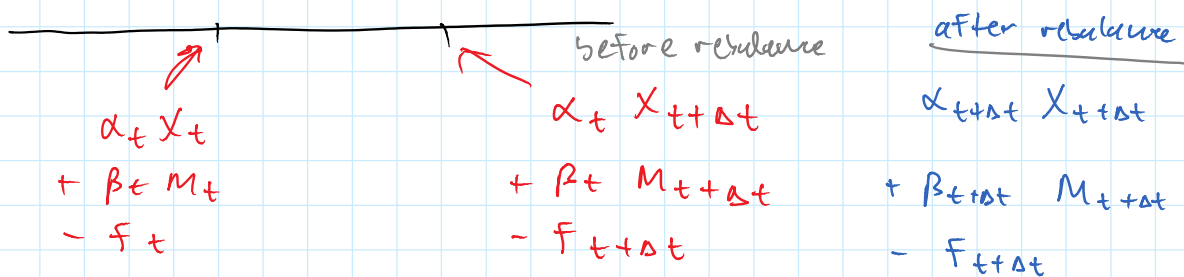 before rebalance
after rebalance
α_t X_t
+ β_t M_t
- f_t
α_t X_{t+Δt}
+ β_t M_{t+Δt}
- f_{t+Δt}
α_{t+Δt} X_{t+Δt}
+ β_{t+Δt} M_{t+Δt}
- f_{t+Δt}